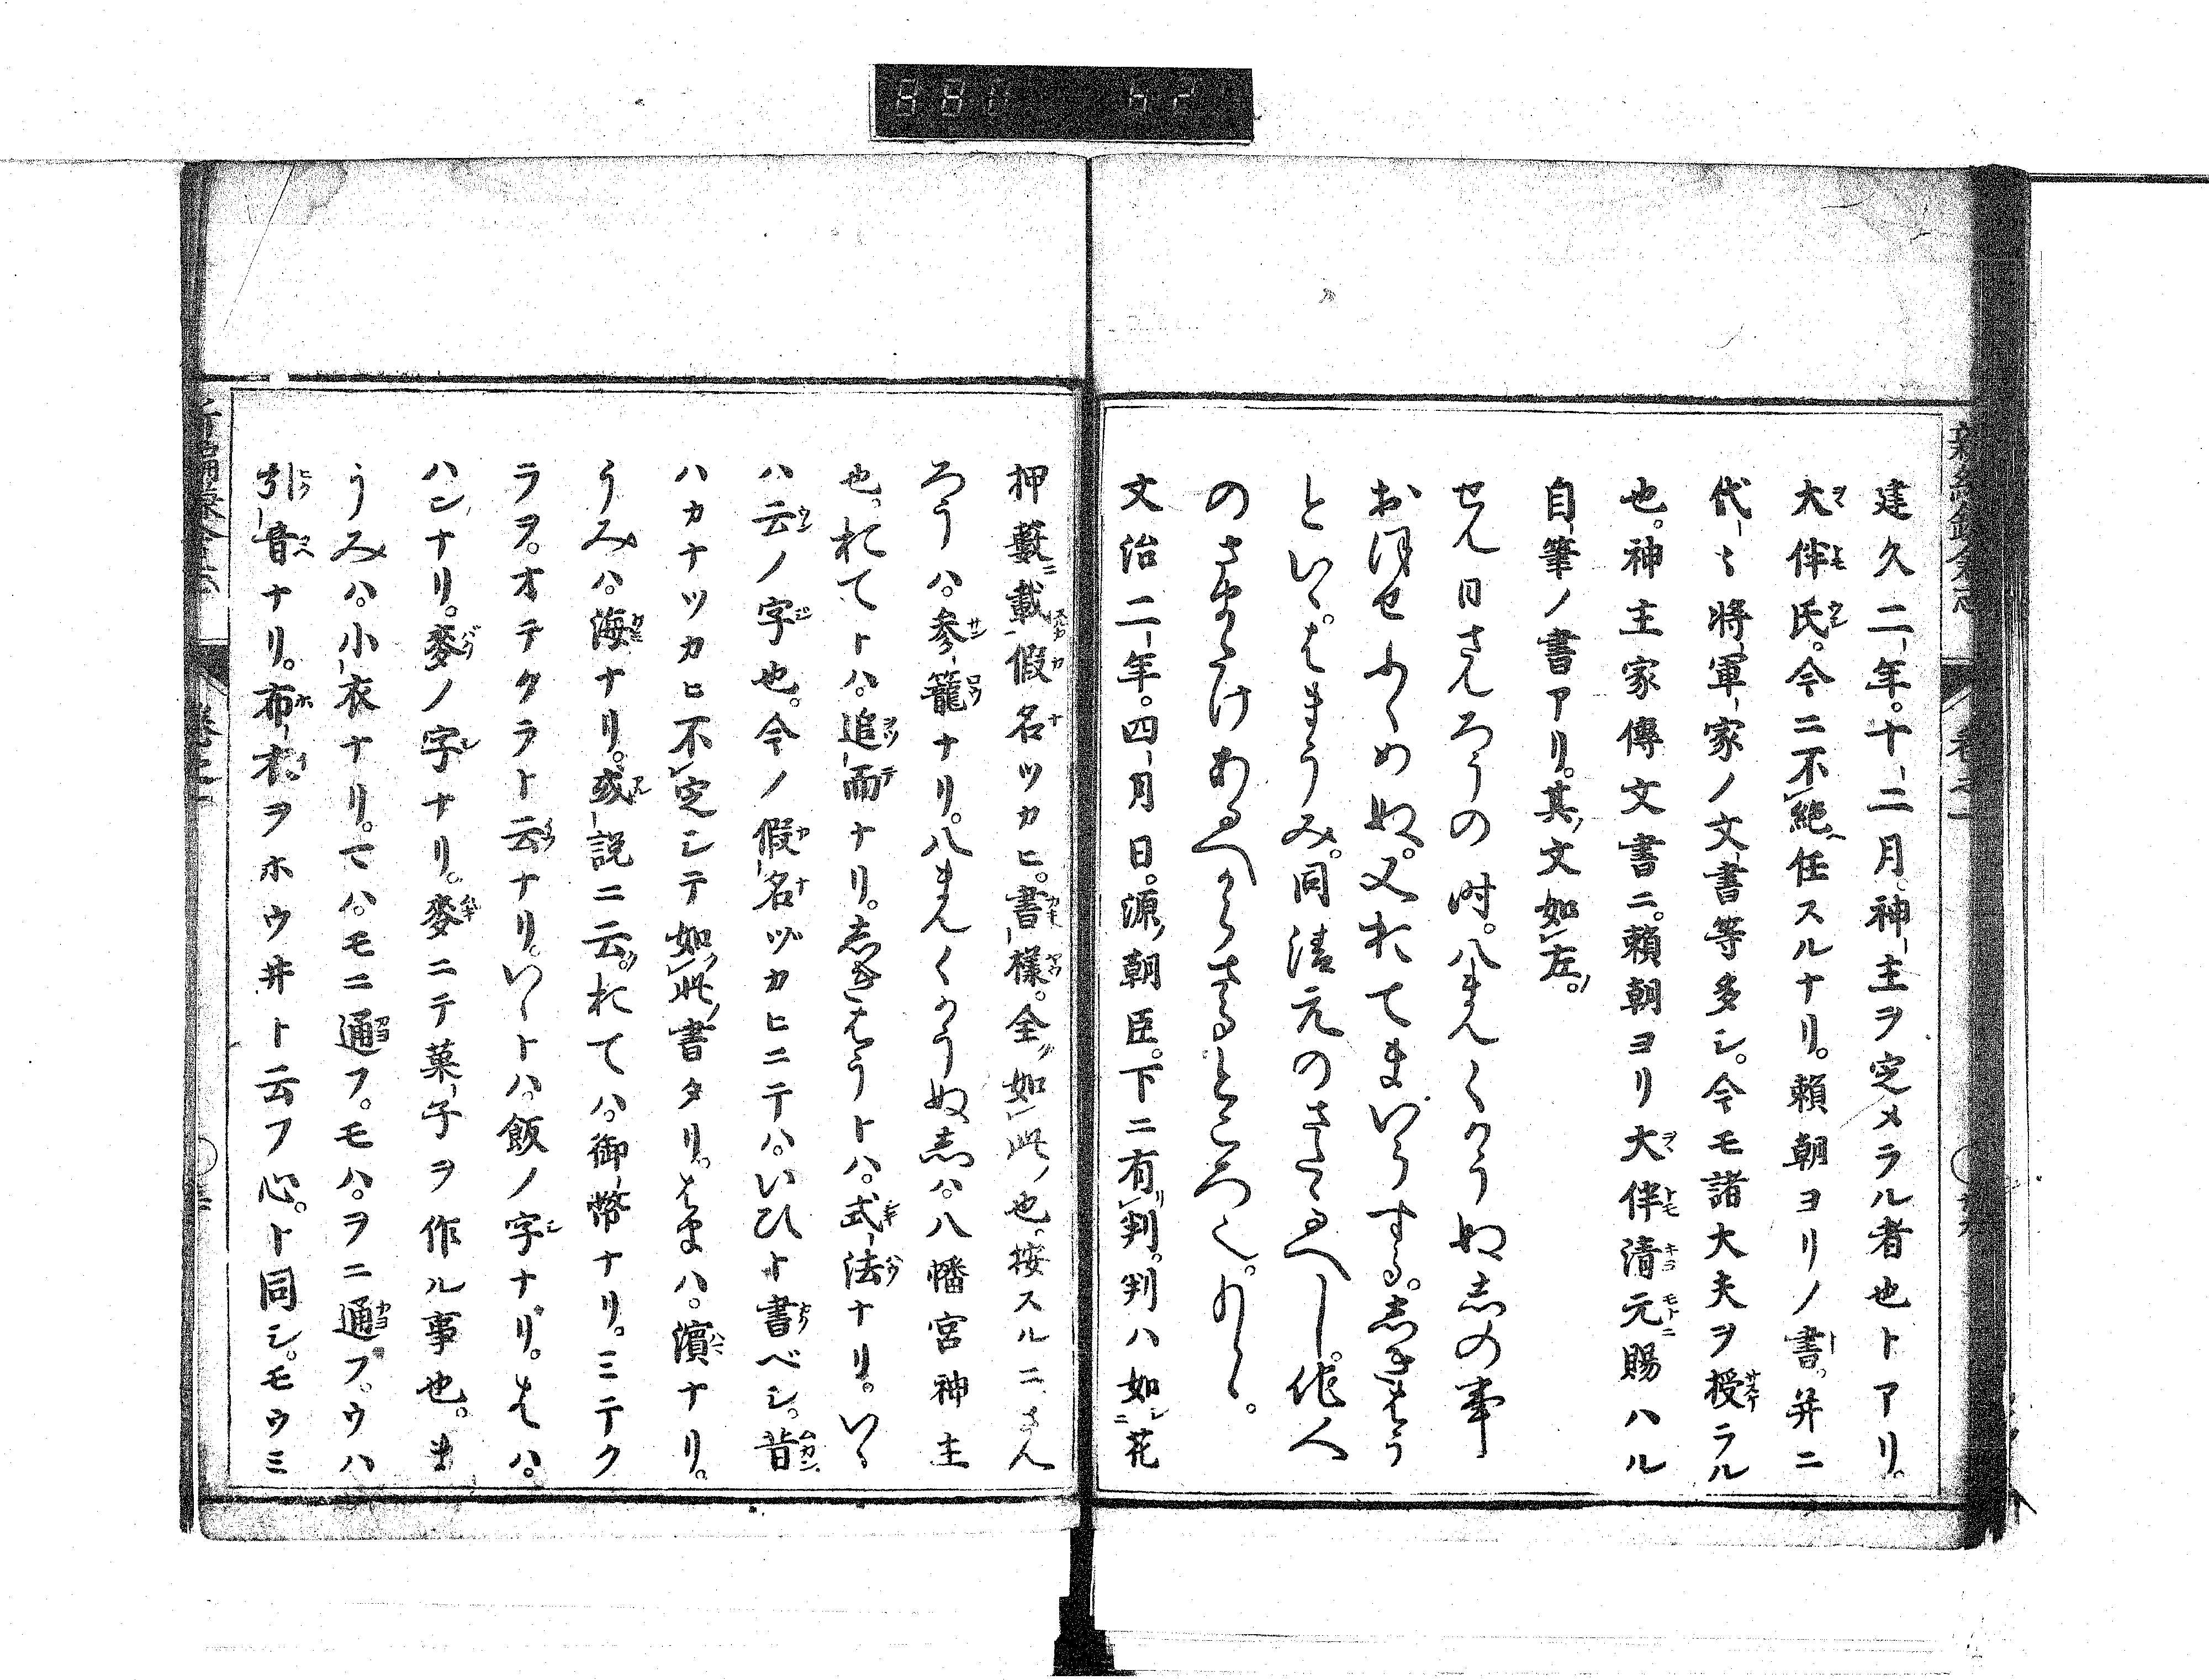 建久二年。十二月。神主ヲ定メラル者也トアリ。
大伴氏。今ニ不絶任スルナリ。頼朝ヨリノ書。并ニ
代々將軍家ノ文書等多シ。今モ諸大夫ヲ授ラル
也。神主家傳文書ニ。頼朝ヨリ大伴清元賜ハル
自筆ノ書アリ。其文如左。
せん日さんろうの時。八まんくうかんぬしの事
おほせふくめぬ。又おてまいらする。志きはう
といゝ。はまうみ。同清元のさたるべし。他人
のさまたけあるべからさるところ也。
文治二年。四月日。源朝臣。下ニ有判。判ハ如花
押藪載。假名ツカヒ。書樣。全如此也。按スルニ、さん
ろうハ。參籠ナリ。八まんくうかんぬ志ハ。八幡宮神主
也。おてトハ。追而ナリ。志きはうトハ。式法ナリ。いゝ
ハ云ノ字也。今ノ假名ヅカヒニテハ。いひト書ベシ。昔
ハカナツカヒ不定シテ如此書タリ。はまハ。濱ナリ。
うみハ。海ナリ。或説ニ云。おてハ。御幣ナリ。ミテク
ラヲ。オテクラト云ナリ。いゝトハ。飯ノ字ナリ。はハ。
ハンナリ。麥ノ字ナリ。麥ニテ菓子ヲ作ル事也。ま
うみハ。小衣ナリ。マハ。モニ通フ。モハ。ヲニ通フ。ウハ
引音ナリ。布衣ヲホウ井ト云フ心。ト同シ。モウミ